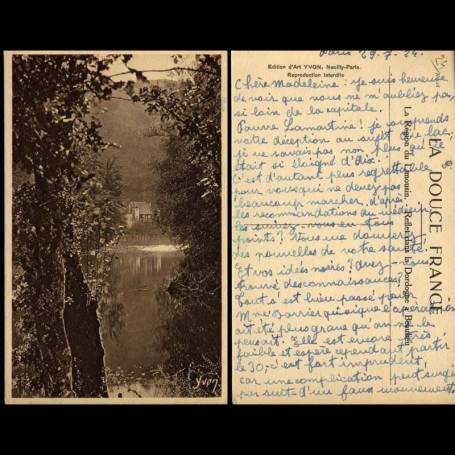 Yvon
Edition d'Art YVON, Neuilly-Paris.
Reproduction Interdite
LA DOUCE FRANCE
La Région du Limousin. - Reflets dans la Dordogne à Beaulieu
Paris 29.7.24.
Chère Madeleine: je suis heureuse
de voir que vous ne m'oubliez pas,
si loin de la capitale.
Pauvre Lamartine! je comprends
votre déception au sujet de lac,
je ne savais pas non plus qu'il
était si éloigné d'Aix.
C'est d'autant plus regrettable
pour vous qui ne devez pas
beaucoup marcher, d'après
les recommandations du médecin
les suivez-vous en tous
points? Vous me donnerez
des nouvelles de votre santé
Et vos idées noires? Avez-
trouvé des connaissances?
Tout s'est bien passé pour
Mme Barrier quoique l'opération
ait été plus grave qu'on ne le
pensait. Elle est encore très
faible et espère cependant partir
le 30; c'est fort imprudent,
car une complication peut surgir
par suite d'un faux mouvement.